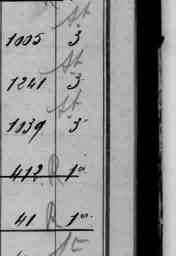 St
1005 3
St
1241 3
St
1039 3
412 R 1a
41 R 1a
St